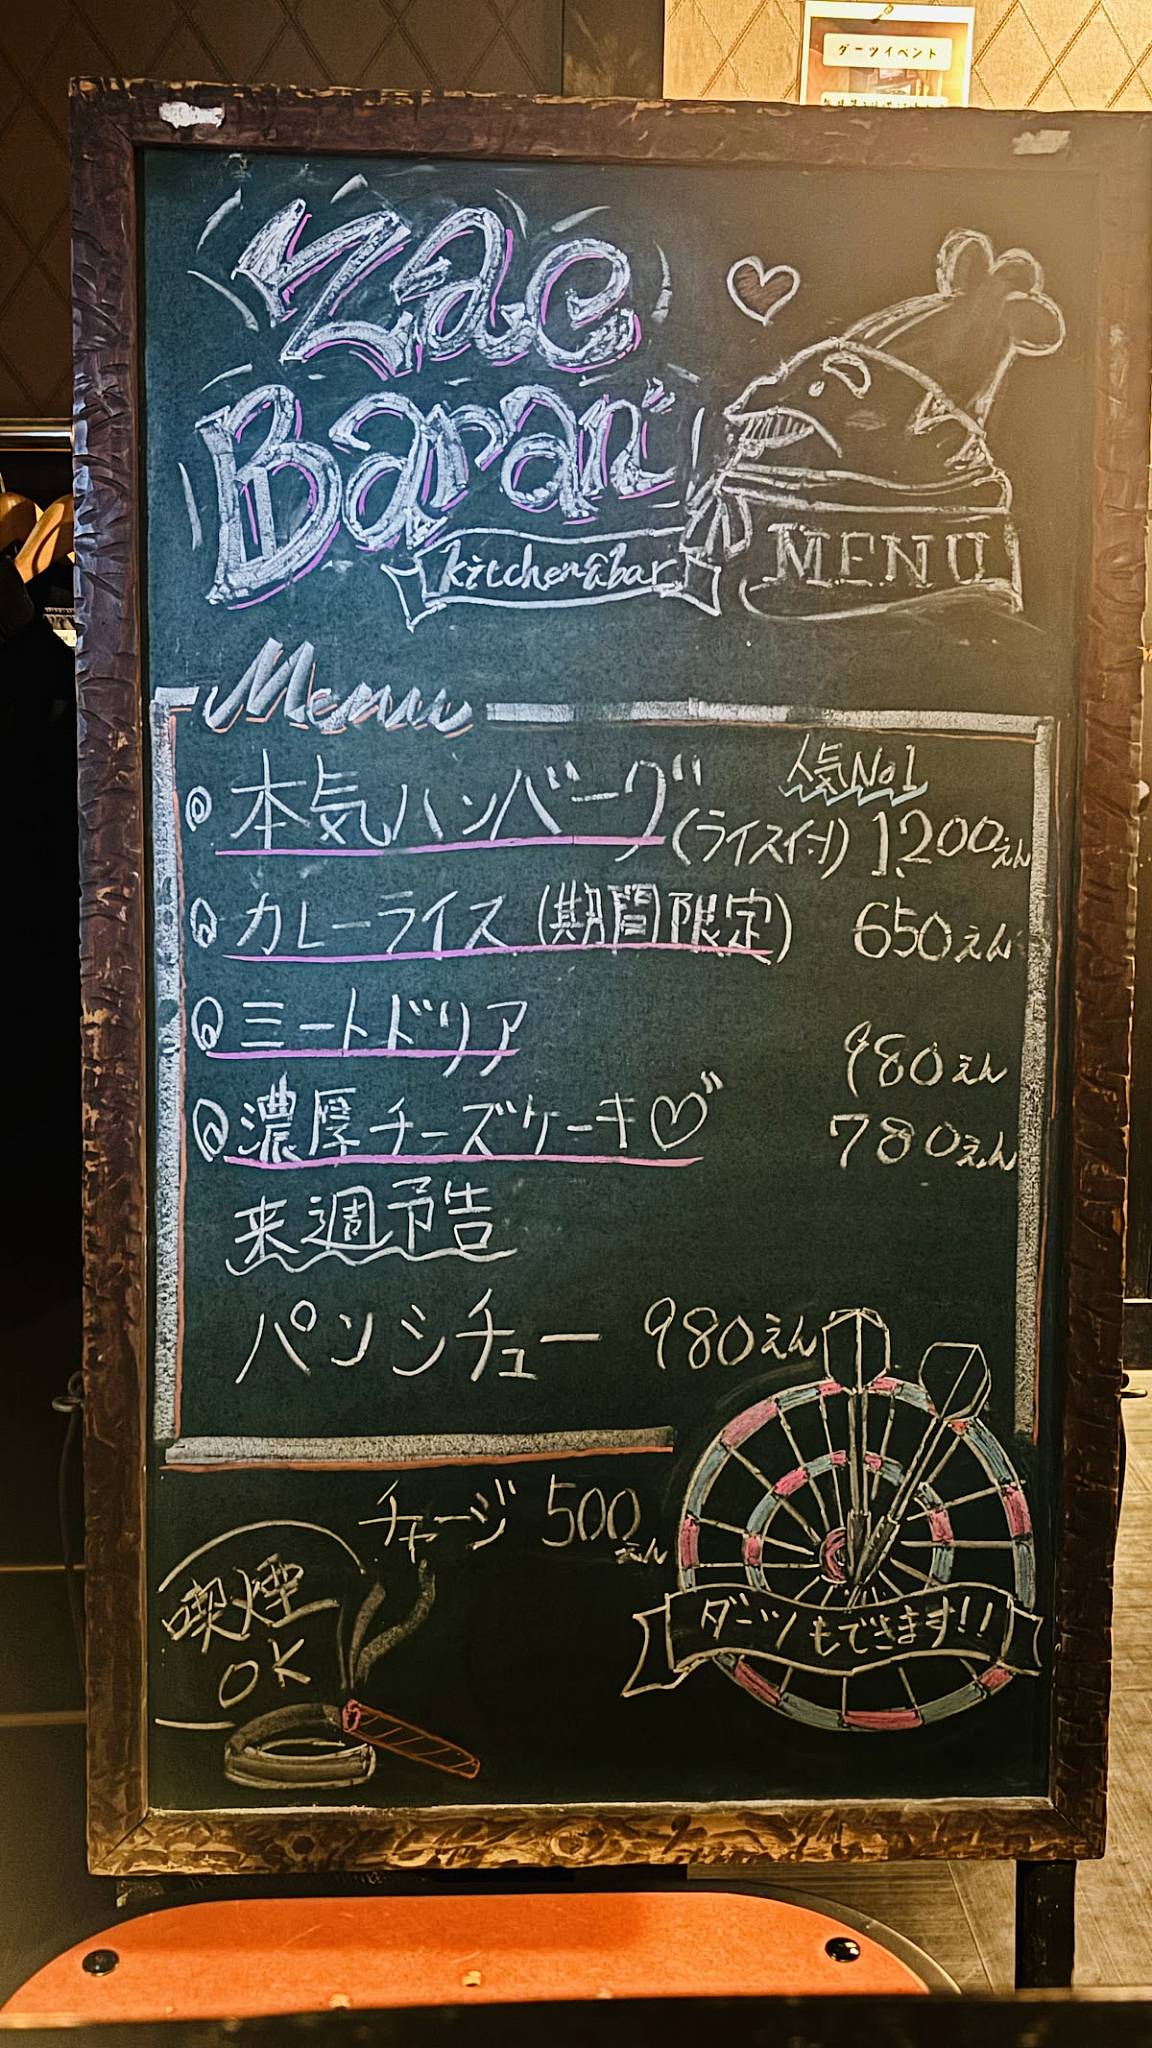 ダーツイベント
Zae
Baran
kitchen&bar
MENU
Menu
人気No1
本気ハンバーグ(ライス付) 1200えん
カレーライス(期間限定) 650えん
ミートドリア 980えん
濃厚チーズケーキ♡ 780えん
来週予告
パンシチュー 980えん
チャージ 500えん
喫煙
OK
ダーツもできます!!